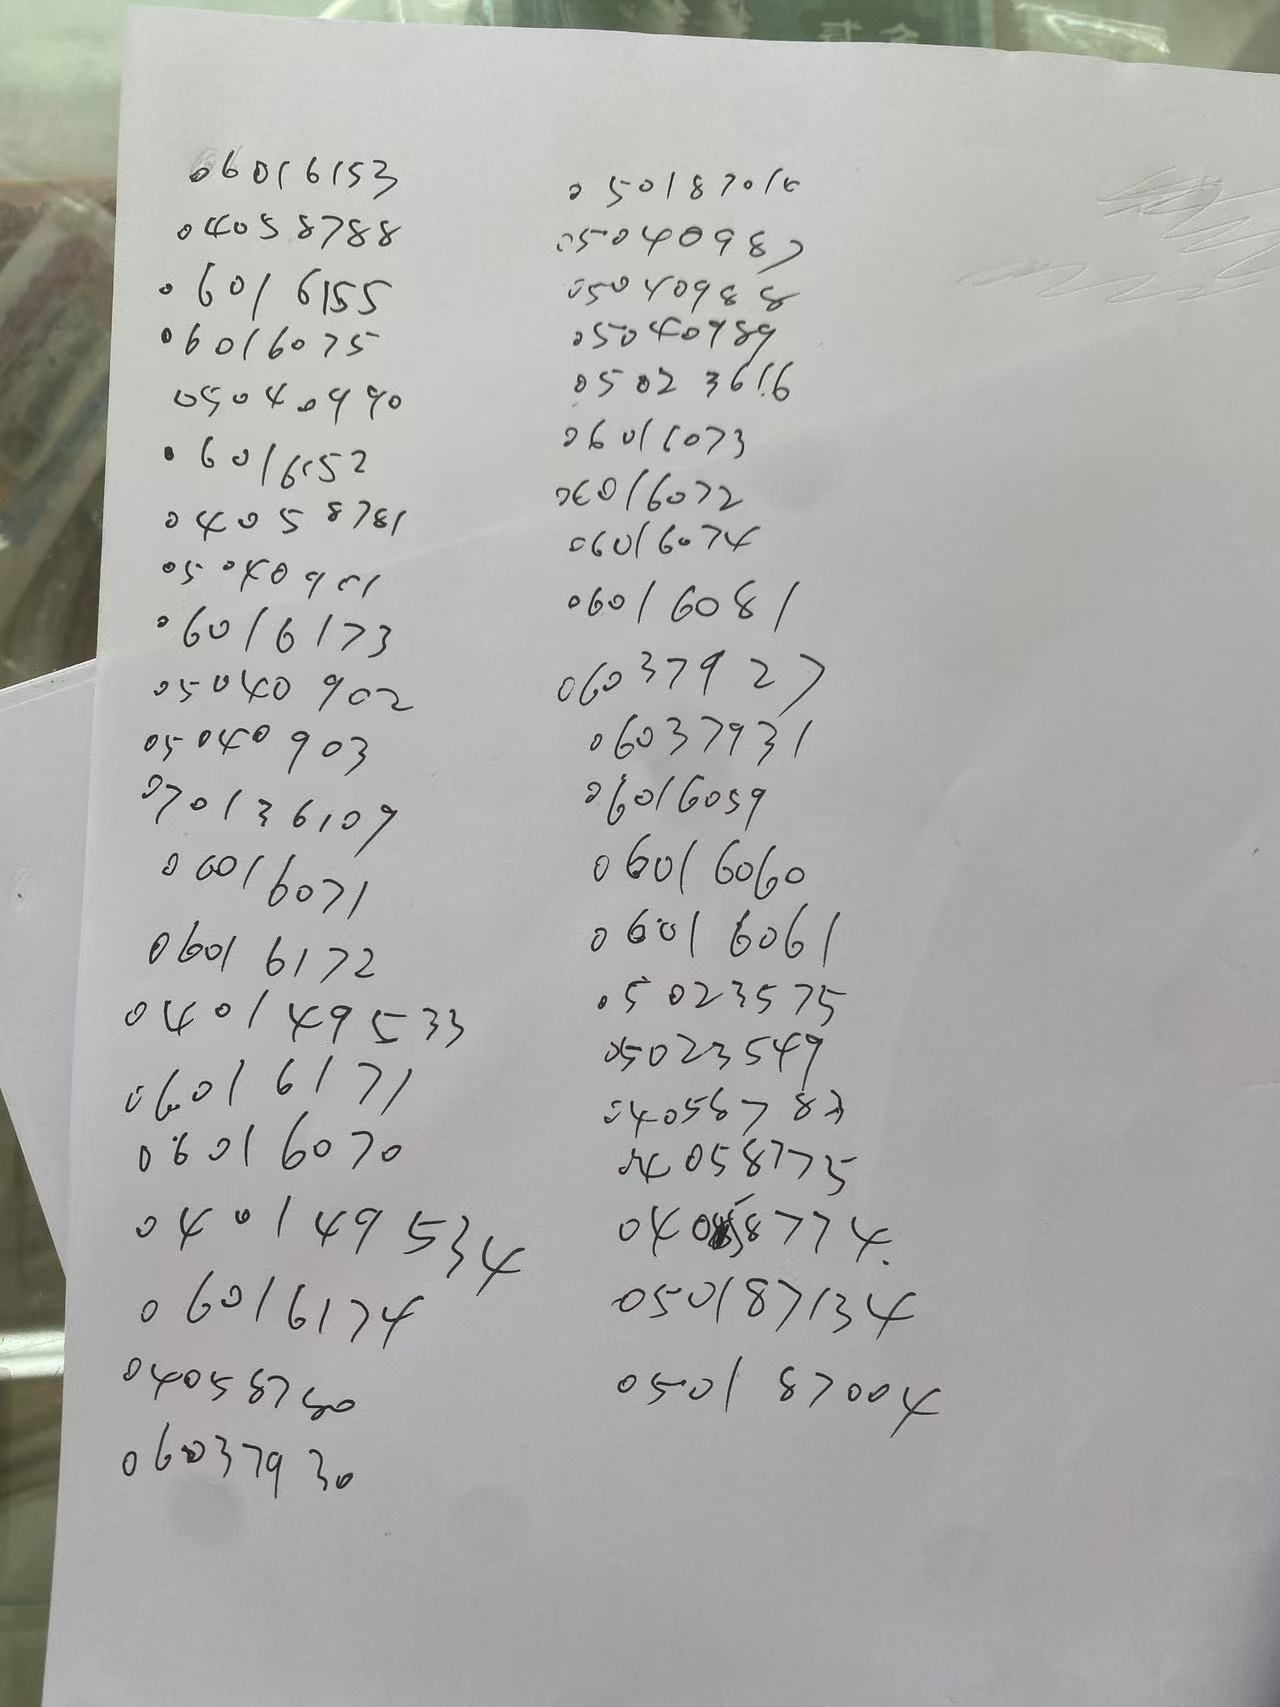 06016153
04058788
06016155
06016075
05040990
06016152
04058781
05040901
06016173
05040902
05040903
070136109
06016071
06016172
040149533
06016171
06016070
040149534
06016174
04058780
06037930
050187016
05040987
05040988
05040989
05023616
06016073
06016072
06016074
06016081
06037927
06037931
06016059
06016060
06016061
05023575
05023549
04058783
04058775
04058774
050187134
050187004